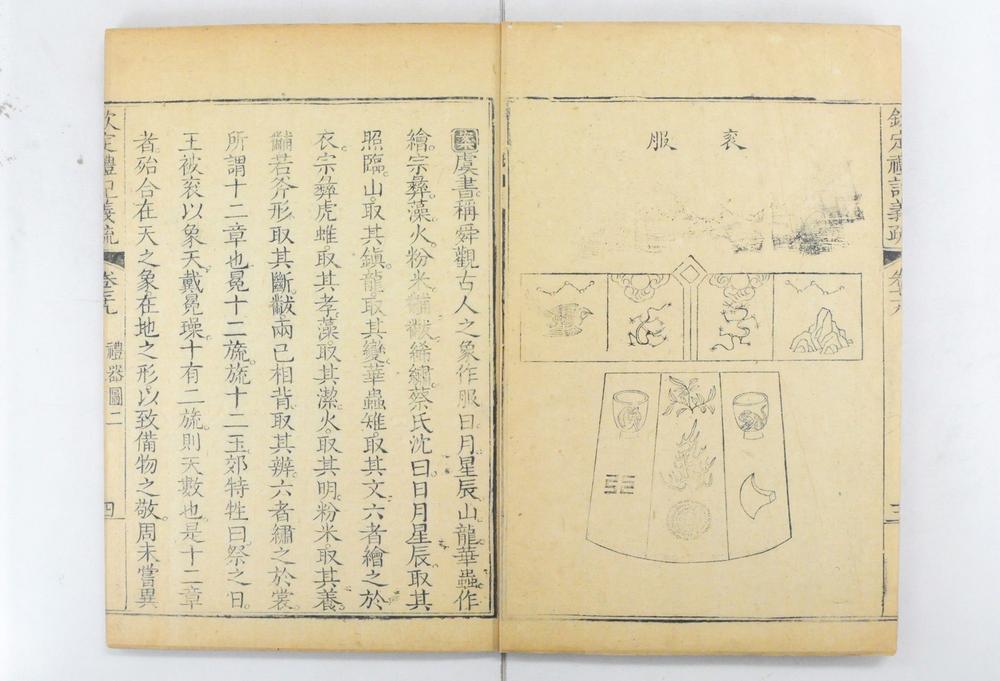 欽定禮記義疏
三
衮服
案虞書稱舜觀古人之象作服日月星辰山龍華蟲作
繪宗彝藻火粉米黼黻絺繡蔡氏沈曰日月星辰取其
照臨。山取其鎮。龍取其變。華蟲雉。取其文。六者繪之於
衣。宗彝虎蜼。取其孝。藻取其潔。火取其明。粉米取其養。
黼若斧形。取其斷。黻兩己相背。取其辨。六者繡之於裳
所謂十二章也。冕十二旒。旒十二玉。郊特牲曰。祭之日。
王被衮以象天。戴冕璪十有二旒。則天數也。是十二章
者。殆合在天之象。在地之形。以致備物之敬。周未嘗異
欽定禮記義疏
禮器圖二
四